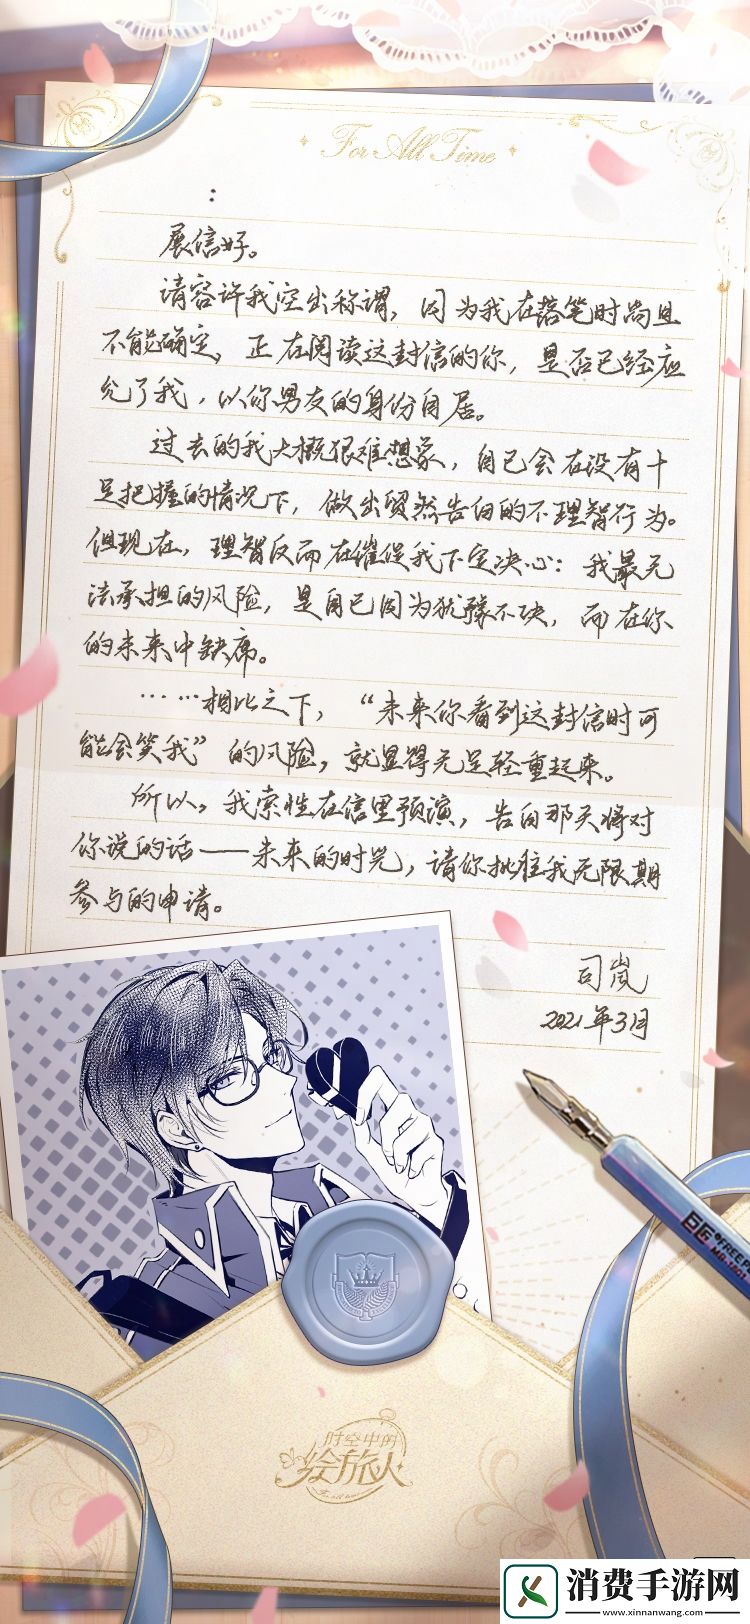 For All Time
:
展信好。
请容许我空出称谓，因为我在落笔时尚且
不能确定，正在阅读这封信的你，是否已经应
允了我，以你男友的身份自居。
过去的我大概很难想象，自己会在没有十
足把握的情况下，做出贸然告白的不理智行为。
但现在，理智反而在催促我下定决心：我最无
法承担的风险，是自己因为犹豫不决，而在你
的未来中缺席。
……相比之下，“未来你看到这封信时可
能会笑我”的风险，就显得无足轻重起来。
所以，我索性在信里预演，告白那天将对
你说的话——未来的时光，请你批准我无限期
参与的申请。
司岚
2021年3月
时空中的
绘旅人
For all time
消费手游网
www.xinnanwang.com